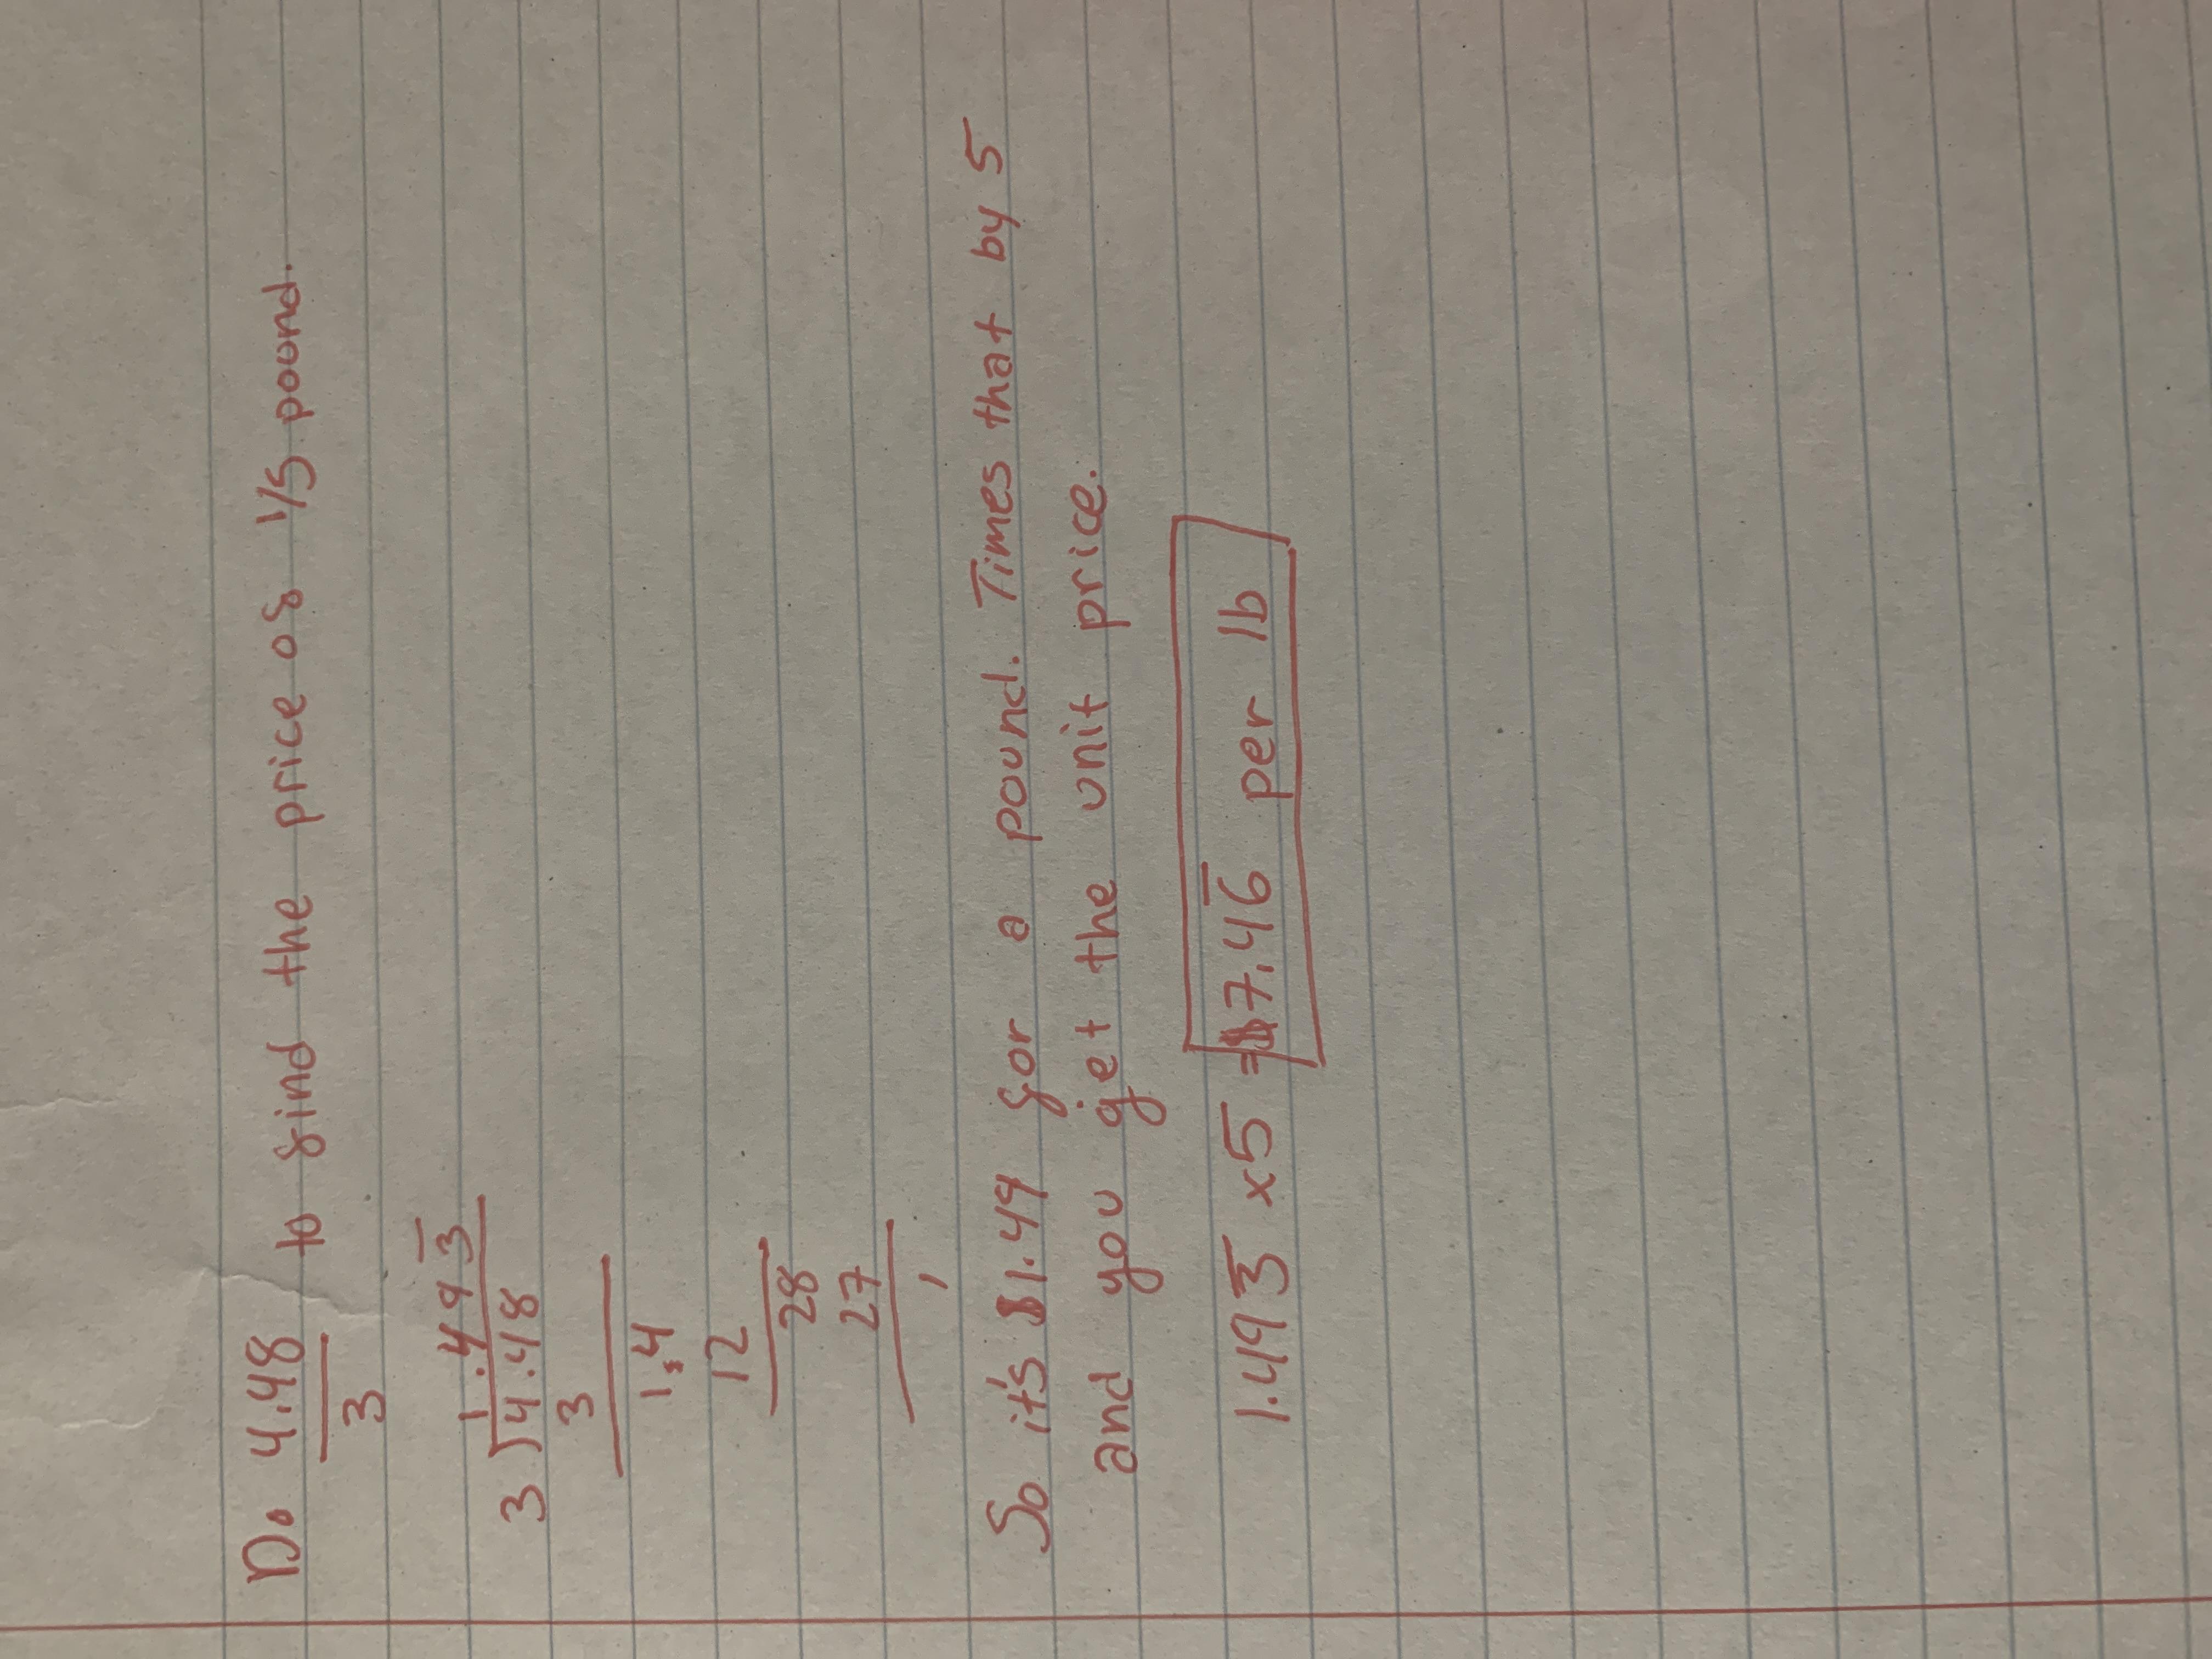 Do 4.48 to find the price of 1/5 pound.
3
1.493̅
3 4.48
3
1.4
12
28
27
1
So it's $1.49 for a pound. Times that by 5
and you get the unit price.
1.493̅ x5 = $7.46̅ per lb